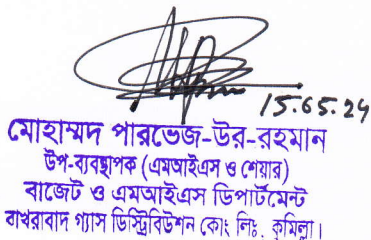 15.05.24
মোহাম্মদ পারভেজ-উর-রহমান
উপ-ব্যবস্থাপক (এমআইএস ও শেয়ার)
বাজেট ও এমআইএস ডিপার্টমেন্ট
বাখরাবাদ গ্যাস ডিস্ট্রিবিউশন কোং লিঃ, কুমিল্লা।